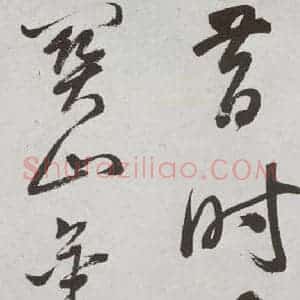 昔时
关山
Shufaziliao.COM